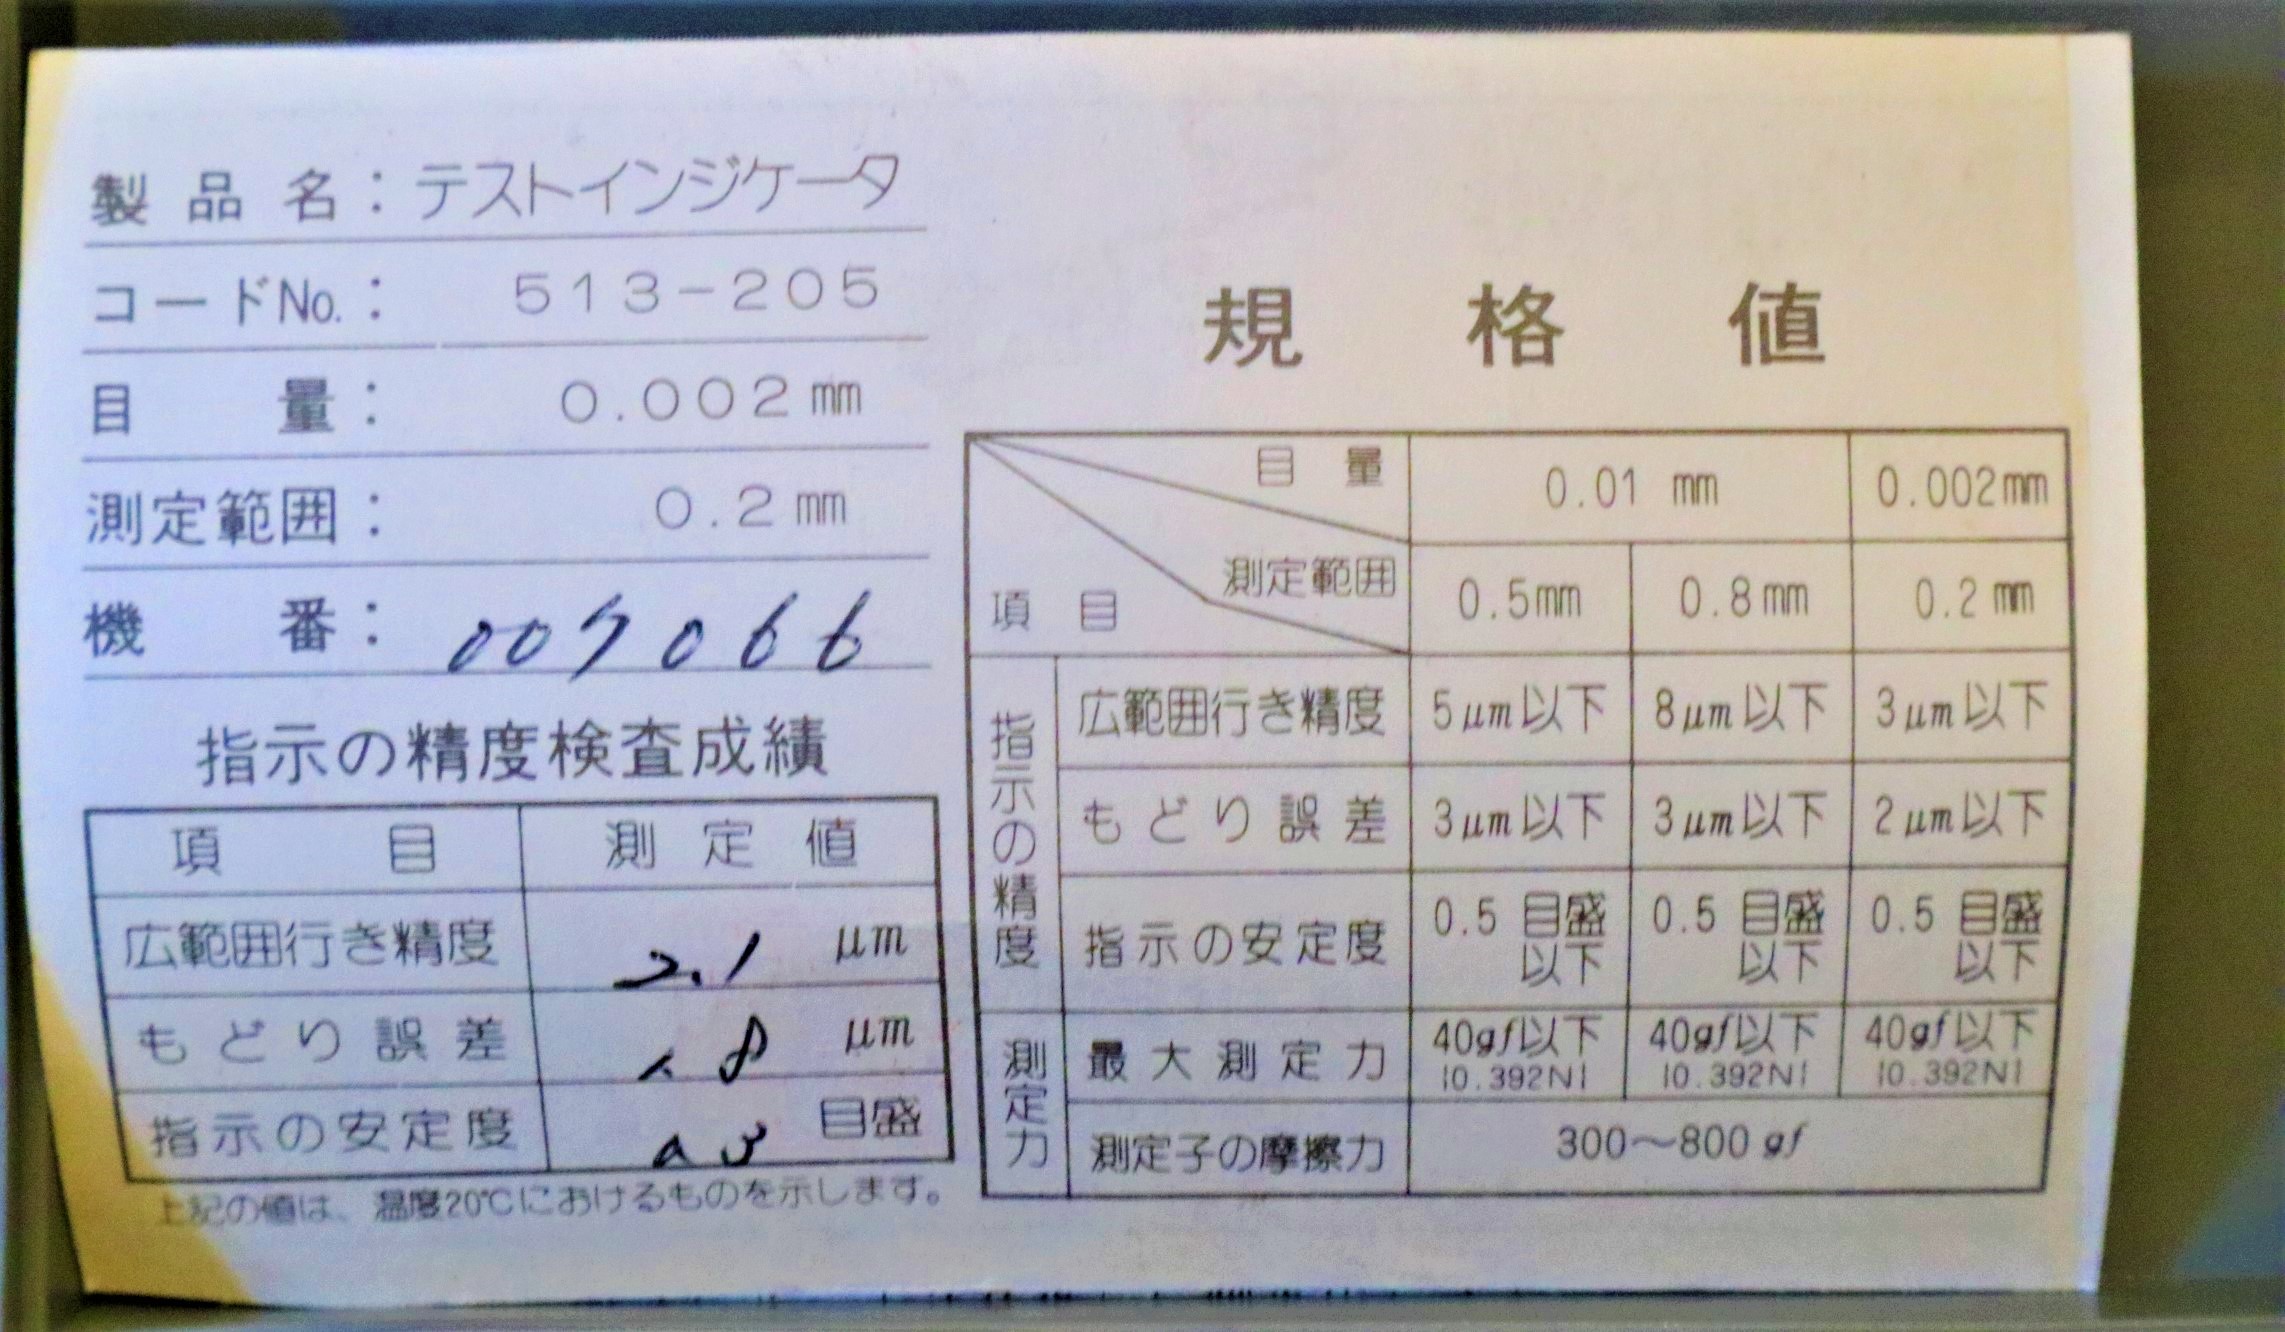 製品名：テストインジケータ
コードNo.：513-205
目量：0.002mm
測定範囲：0.2mm
機番：007066
指示の精度検査成績
項目 測定値
広範囲行き精度 2.1 μm
もどり誤差 1.8 μm
指示の安定度 0.3 目盛
上記の値は、温度20℃におけるものを示します。
規格値
目量 0.01 mm 0.002mm
測定範囲 0.5mm 0.8mm 0.2mm
項目
指示の精度
広範囲行き精度 5μm以下 8μm以下 3μm以下
もどり誤差 3μm以下 3μm以下 2μm以下
指示の安定度 0.5 目盛以下 0.5 目盛以下 0.5 目盛以下
測定力
最大測定力 40gf以下 40gf以下 40gf以下
{0.392N} {0.392N} {0.392N}
測定子の摩擦力 300～800 gf